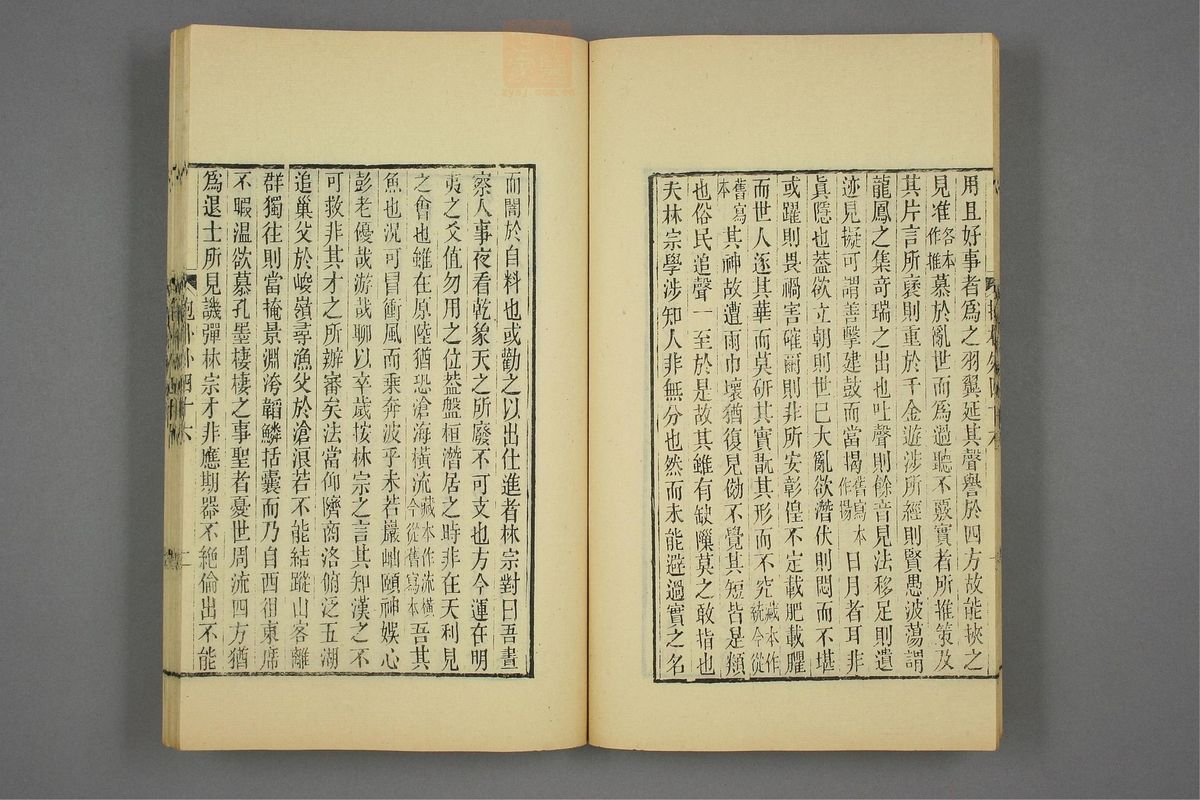 用且好事者爲之羽翼延其聲譽於四方故能挾之
見准各本作推慕於亂世而爲過聽不覈實者所推策及
其片言所襃則重於千金遊涉所經則賢愚波蕩謂
龍鳳之集奇瑞之出也吐聲則餘音見法移足則遺
迹見擬可謂善擊建鼓而當揭舊寫本作揚日月者耳非
眞隱也葢欲立朝則世已大亂欲潛伏則悶而不堪
或躍則畏禍害確爾則非所安彰偟不定載肥載臞
而世人逐其華而莫硏其實翫其形而不究藏本作統今從
舊寫本其神故遭雨巾壞猶復見傚不覺其短皆是類
也俗民追聲一至於是故其雖有缺隟莫之敢指也
夫林宗學涉知人非無分也然而未能避過實之名
而闇於自料也或勸之以出仕進者林宗對曰吾晝
察人事夜看乾象天之所廢不可支也方今運在明
夷之爻值勿用之位葢盤桓潛居之時非在天利見
之會也雖在原陸猶恐滄海橫流藏本作流橫今從舊寫本吾其
魚也況可冒衝風而乘奔波乎未若巖岫頤神娛心
彭老優哉游哉聊以卒歲按林宗之言其知漢之不
可救非其才之所辦審矣法當仰隮商洛俯泛五湖
追巢父於峻嶺尋漁父於滄浪若不能結蹤山客離
群獨往則當掩景淵洿韜鱗括囊而乃自西徂東席
不暇溫欲慕孔墨棲棲之事聖者憂世周流四方猶
爲退士所見譏彈林宗才非應期器不絶倫出不能